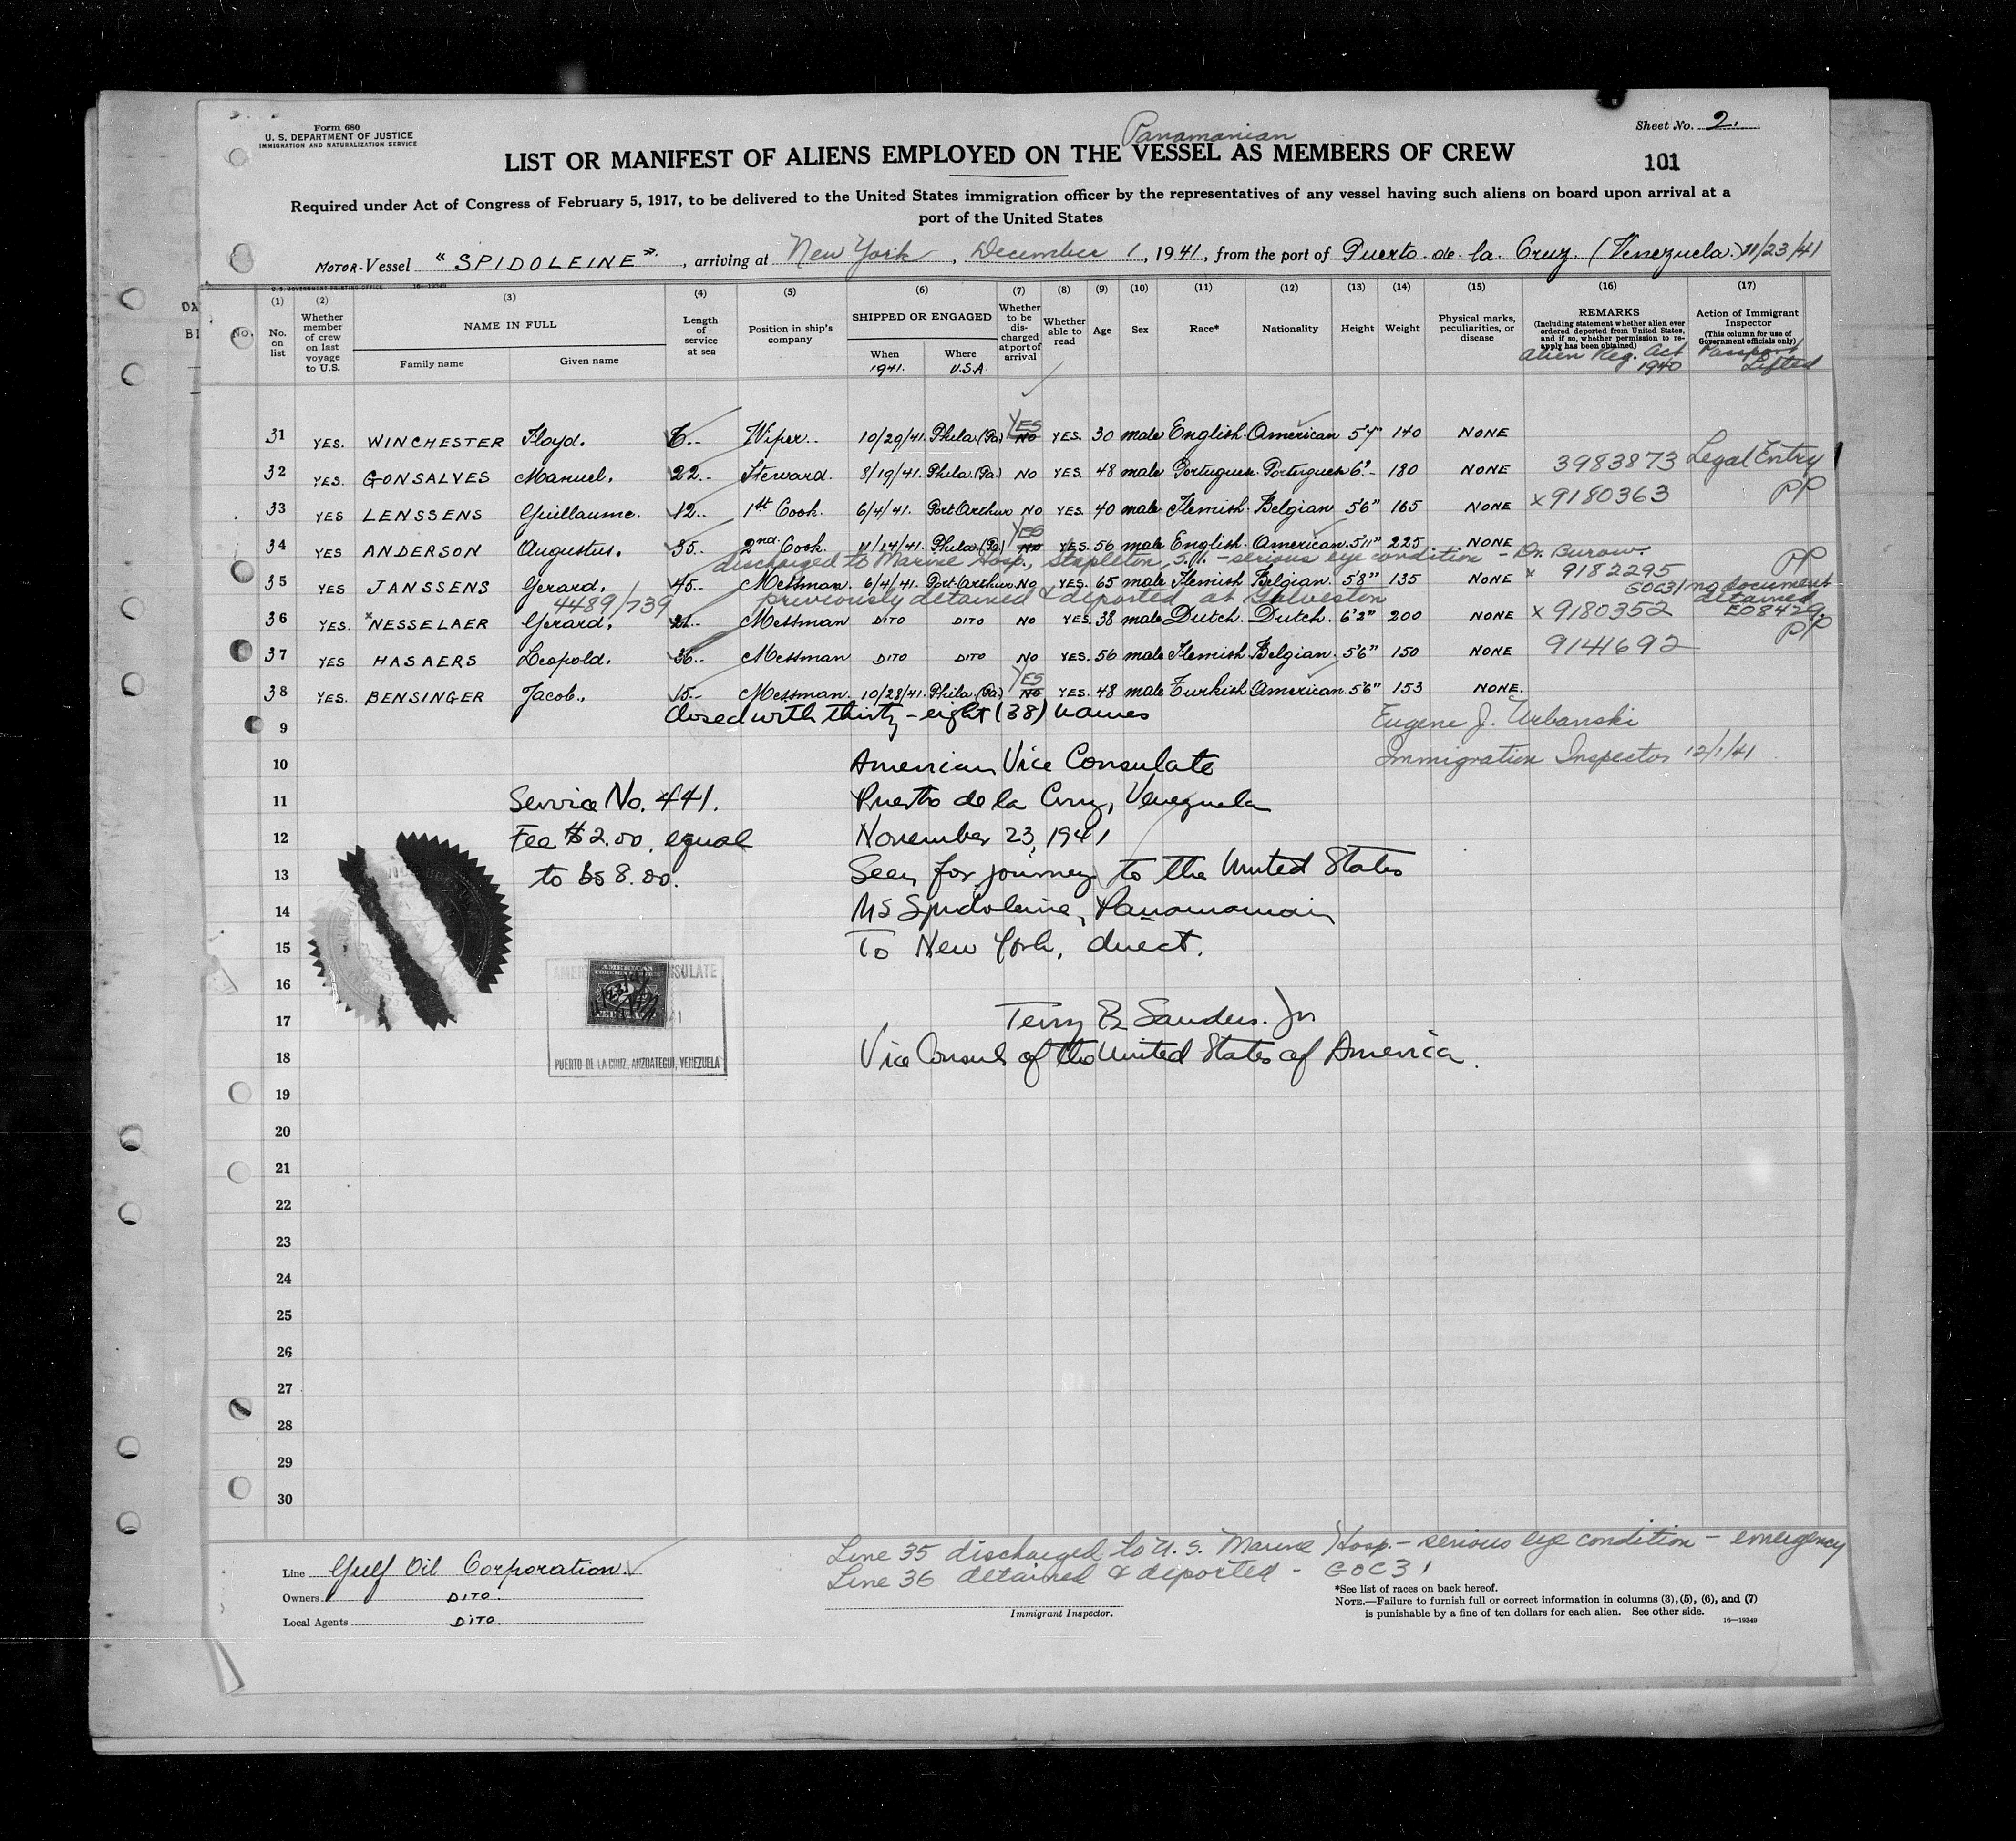 Form 680
U. S. DEPARTMENT OF JUSTICE
IMMIGRATION AND NATURALIZATION SERVICE
Sheet No. 2.
101
Panamanian
LIST OR MANIFEST OF ALIENS EMPLOYED ON THE VESSEL AS MEMBERS OF CREW
Required under Act of Congress of February 5, 1917, to be delivered to the United States immigration officer by the representatives of any vessel having such aliens on board upon arrival at a
port of the United States
MOTOR-Vessel "SPIDOLEINE", arriving at New York, December 1, 1941, from the port of Puerto de la Cruz. (Venezuela.) 11/23/41
U. S. GOVERNMENT PRINTING OFFICE 16—19349
(1) (2) (3) (4) (5) (6) (7) (8) (9) (10) (11) (12) (13) (14) (15) (16) (17)
No. on list
Whether member of crew on last voyage to U.S.
NAME IN FULL
Family name Given name
Length of service at sea
Position in ship's company
SHIPPED OR ENGAGED
When 1941. Where U.S.A.
Whether to be discharged at port of arrival
Whether able to read
Age
Sex
Race*
Nationality
Height
Weight
Physical marks, peculiarities, or disease
REMARKS
(Including statement whether alien ever ordered deported from United States, and if so, whether permission to reapply has been obtained)
Alien Reg. Act 1940
Action of Immigrant Inspector
(This column for use of Government officials only)
Passport Lifted
31 YES. WINCHESTER Floyd. 6.- Wiper. 10/29/41. Phila (Pa) YES NO YES. 30 male English. American 5'7" 140 NONE
32 YES. GONSALVES Manuel. 22.- Steward. 8/19/41. Phila. (Pa.) NO YES. 48 male Portuguese. Portuguese 6'- 180 NONE 3983873 Legal Entry
33 YES LENSSENS Guillaume. 12.. 1st Cook. 6/4/41. Port Arthur NO YES. 40 male Flemish. Belgian 5'6" 165 NONE x 9180363 PP
34 YES ANDERSON Augustus. 35.. 2nd Cook. 11/14/41. Phila. (Pa) YES NO YES. 56 male English. American. 5'11" 225 NONE
discharged to Marine Hosp., Stapleton, S.I. - serious eye condition - Dr. Burow.
35 YES JANSSENS Gerard. 45.. Messman. 6/4/41. Port Arthur. NO YES. 65 male Flemish Belgian. 5'8" 135 NONE x 9182295 PP
4489/739 previously detained & deported at Galveston GOC31 no document detained
36 YES. x NESSELAER Gerard. 21.. Messman DITO DITO NO YES. 38 male Dutch. Dutch. 6'2" 200 NONE x 9180352 EO8429.
37 YES HASAERS Leopold. 36.. Messman DITO DITO NO YES. 56 male Flemish Belgian. 5'6" 150 NONE 9141692 PP
38 YES. BENSINGER Jacob. 15.- Messman. 10/28/41. Phila. (Pa) YES NO YES. 48 male Turkish American. 5'6" 153 NONE.
Closed with thirty-eight (38) names
Eugene J. Urbanski
Immigration Inspector 12/1/41
9
10 American Vice Consulate
11 Service No. 441. Puerto de la Cruz, Venezuela
12 Fee $2.00, equal November 23, 1941
13 to Bs 8.00. Seen for journey to the United States
14 MS Spidoleine, Panamanian
15 To New York, direct.
16
AMERICAN
CONSULATE
PUERTO DE LA CRUZ, ANZOATEGUI, VENEZUELA
17 Terry B Sanders. Jr
18 Vice Consul of the United States of America.
19
20
21
22
23
24
25
26
27
28
29
30
Line Gulf Oil Corporation
Owners DITO.
Local Agents DITO.
Line 35 discharged to U. S. Marine Hosp. - serious eye condition - emergency
Line 36 detained & deported - GOC31
Immigrant Inspector.
*See list of races on back hereof.
NOTE.—Failure to furnish full or correct information in columns (3), (5), (6), and (7)
is punishable by a fine of ten dollars for each alien. See other side. 16—19349